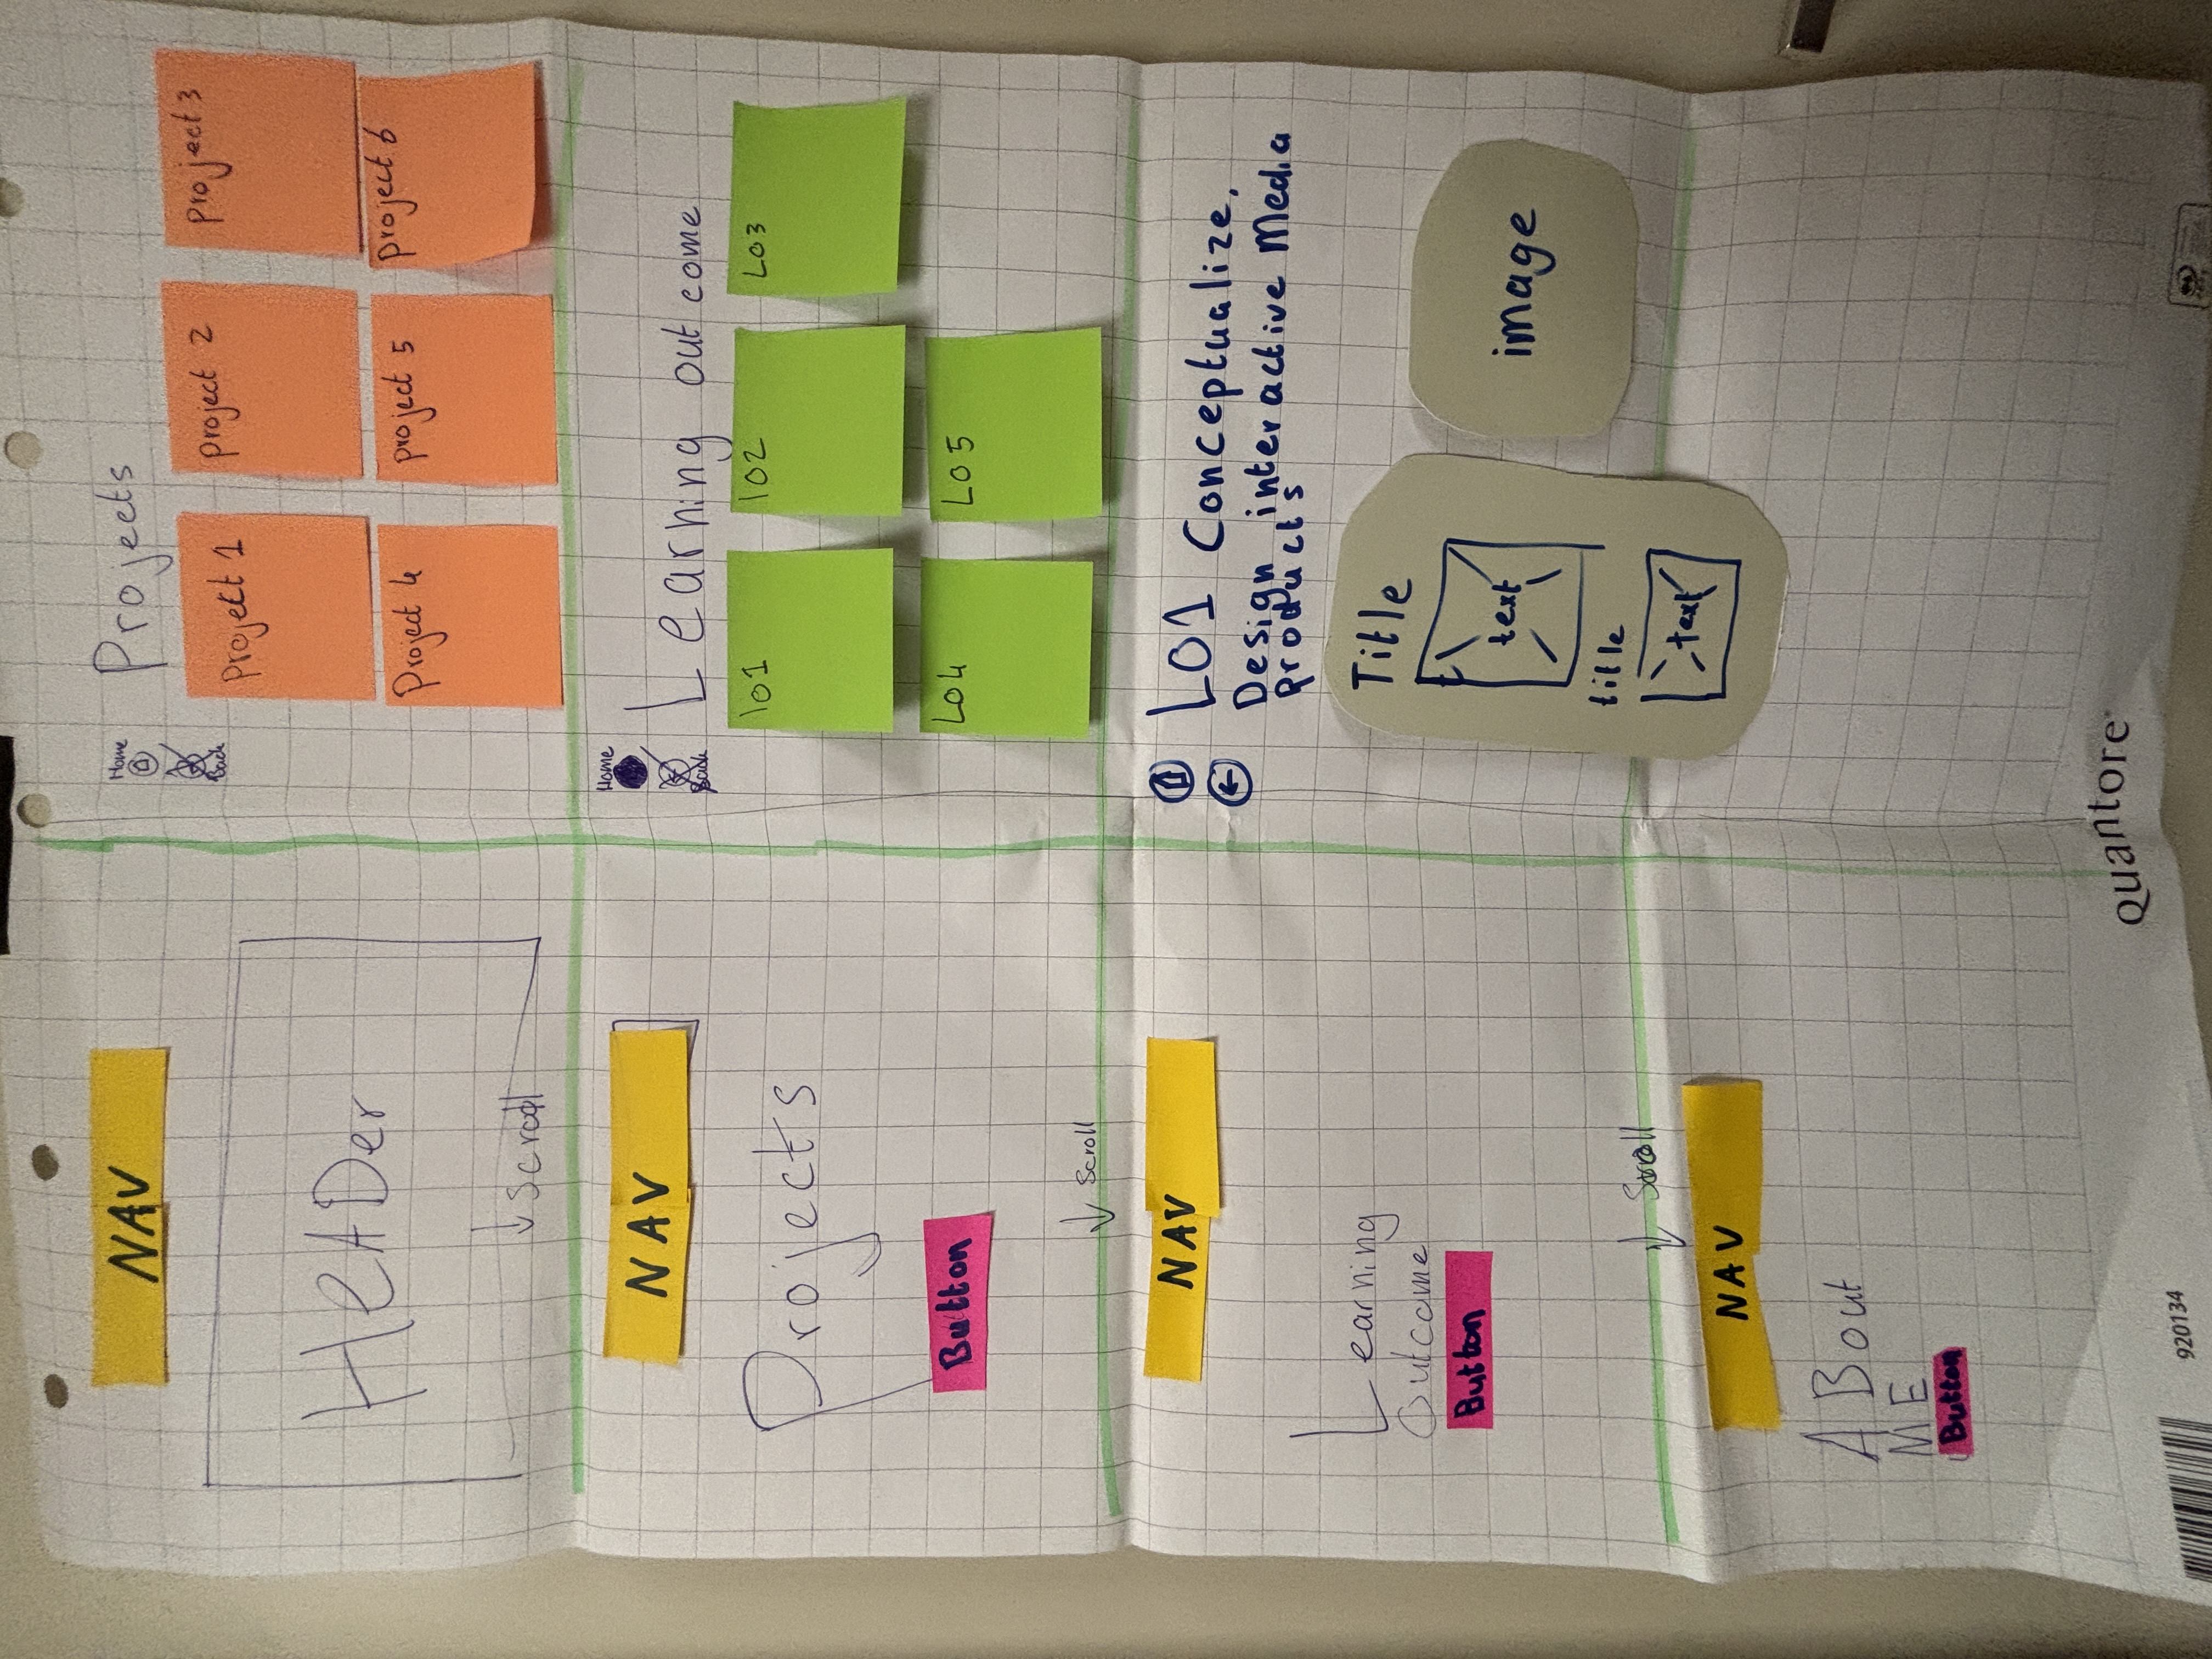 NAV
HeADer
↓ Scroll
NAV
Projects
Button
↓ Scroll
NAV
Learning
Outcome
Button
↓ Scroll
NAV
ABout
ME
Button
Home
Back
Projects
Project 1
project 2
project 3
Project 4
project 5
project 6
Home
Back
Learning out come
lo1
lo2
LO3
LO4
LO5
←
LO1 Conceptualize,
Design interactive Media
products
Title
text
title
text
image
quantore
920134